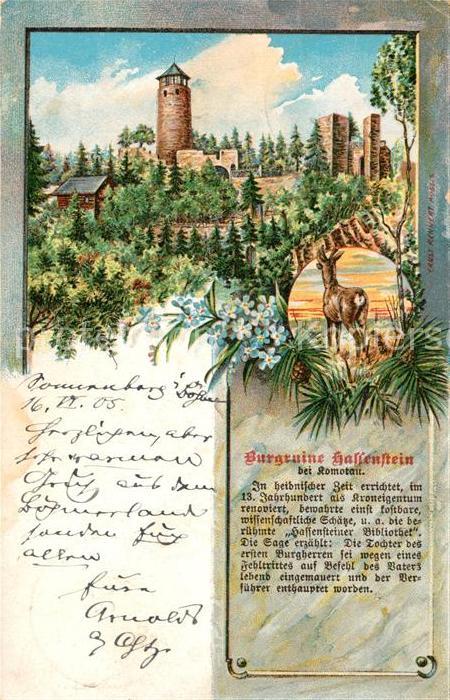 Burgruine Hassenstein
bei Komotau.
In heidnischer Zeit errichtet, im
13. Jahrhundert als Kroneigentum
renoviert, bewahrte einst kostbare,
wissenschaftliche Schätze, u. a. die be-
rühmte „Hassensteiner Bibliothek".
Die Sage erzählt: Die Tochter des
ersten Burgherren sei wegen eines
Fehltrittes auf Befehl des Vaters
lebend eingemauert und der Ver-
führer enthauptet worden.
Sonnenberg i/ Böhm
16. VI. 05.
Herzligen, aber
sehr warmen
Gruß aus dem
Böhmerland
senden Euch
allen
Eure
Arnold